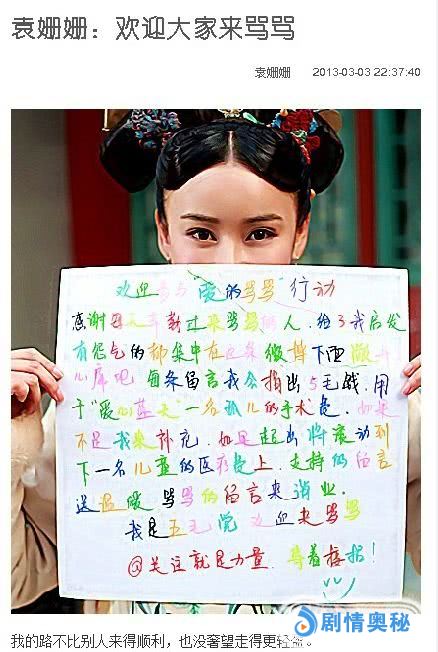 袁姗姗：欢迎大家来骂骂
袁姗姗 2013-03-03 22:37:40
欢迎参与“爱的骂骂”行动
感谢每天辛勤过来骂骂的人.给了我启发
有怨气的都集中在这条微博下面撒
儿库吧 每条留言我会捐出5毛钱.用
于“爱心蓝天”一名孤儿的手术费.如果
不足我来补充.如是超出将滚动到
下一名儿童的医疗费上.支持的留言
送温暖 骂骂的留言来消业.
我是五毛党 欢迎来骂骂
@关注就是力量 等着接招!
我的路不比别人来得顺利，也没奢望走得更轻盈。
剧情奥秘